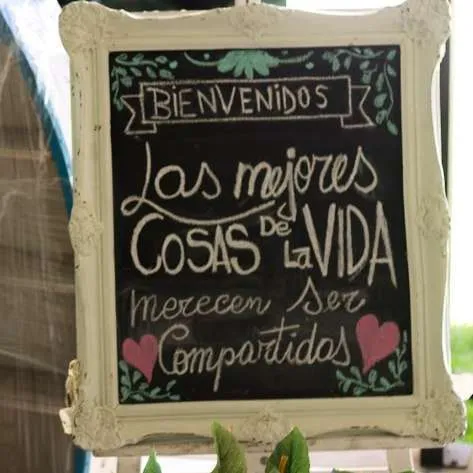 BIENVENIDOS
Las mejores
COSAS DE LA VIDA
merecen ser
Compartidas